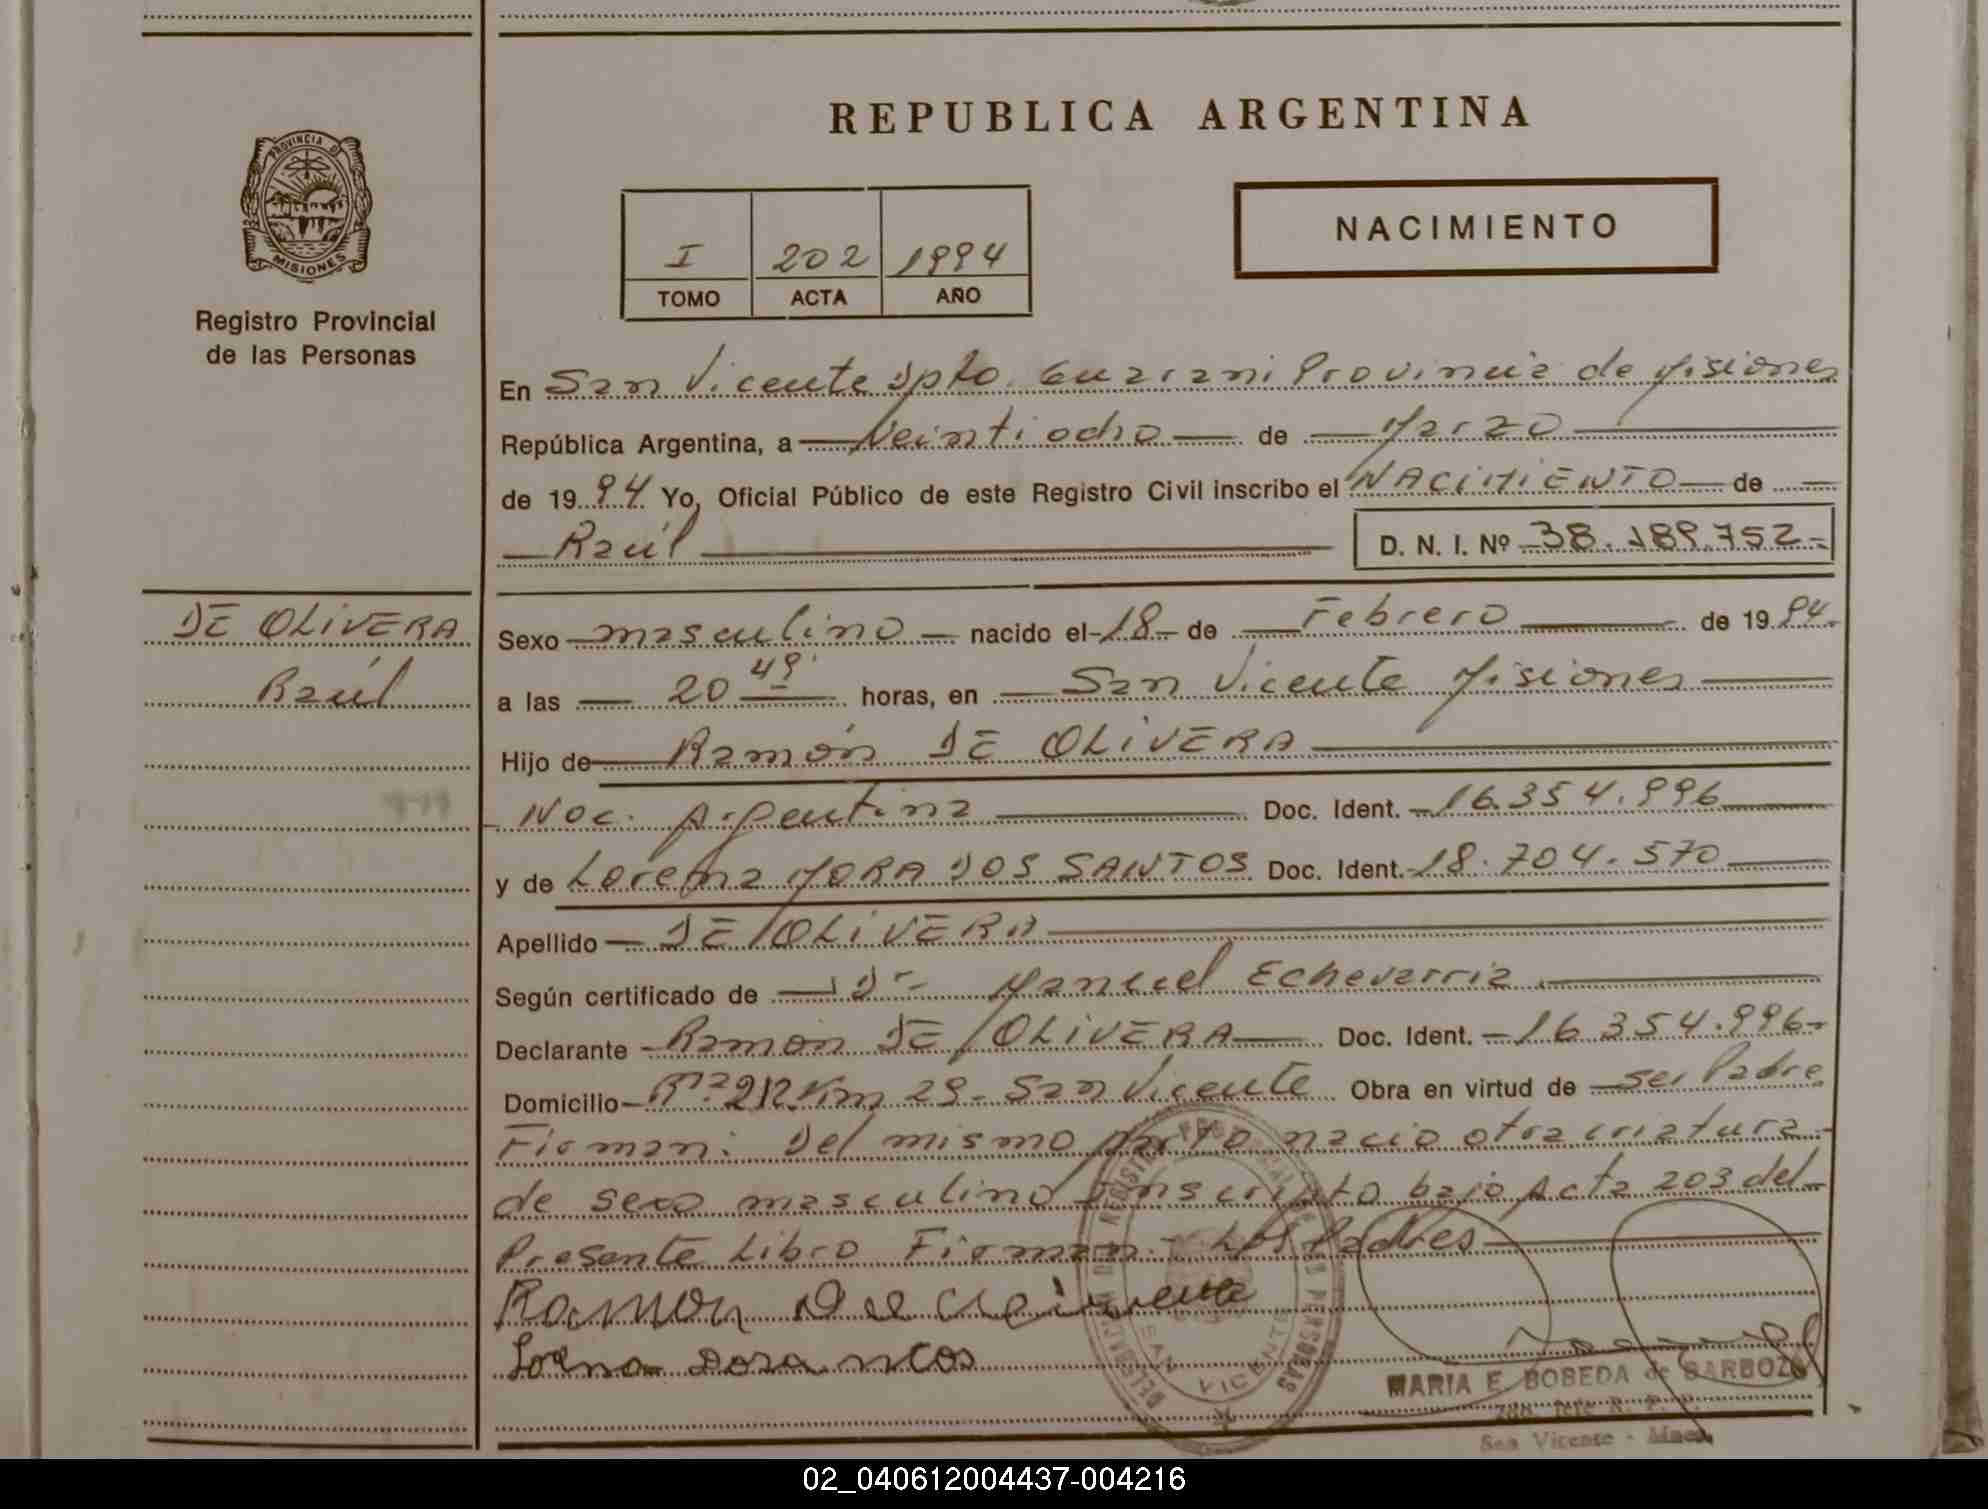 REPUBLICA ARGENTINA
PROVINCIA D
MISIONES
Registro Provincial
de las Personas
I 202 1994
TOMO ACTA AÑO
NACIMIENTO
En San Vicente Dpto. Guarani Provincia de Misiones
República Argentina, a Veintiocho de Marzo
de 1994 Yo, Oficial Público de este Registro Civil inscribo el NACIMIENTO de
Raúl D. N. I. Nº 38.189.752.-
DE OLIVERA
Raúl
Sexo masculino nacido el 18 de Febrero de 1994.
a las 20 49 horas, en San Vicente Misiones
Hijo de Ramón DE OLIVERA
Nac. Argentina Doc. Ident. 16.354.996
y de Lorena MORA DOS SANTOS Doc. Ident. 18.704.570
Apellido DE OLIVERA
Según certificado de Dr Manuel Echevarria
Declarante Ramón DE OLIVERA Doc. Ident. 16.354.996-
Domicilio Km 29- San Vicente Obra en virtud de ser Padre
Firman: Del mismo parto nacio otra criatura
de sexo masculino inscripto bajo Acta 203 del
Presente Libro Firman.- Los Padres
Ramon
DELEGACION REGISTRO PROVINCIAL DE LAS PERSONAS
SAN VICENTE
MARIA E. BOBEDA de BARBOZA
Jefe R. P. P.
San Vicente - Mnes.
02_040612004437-004216